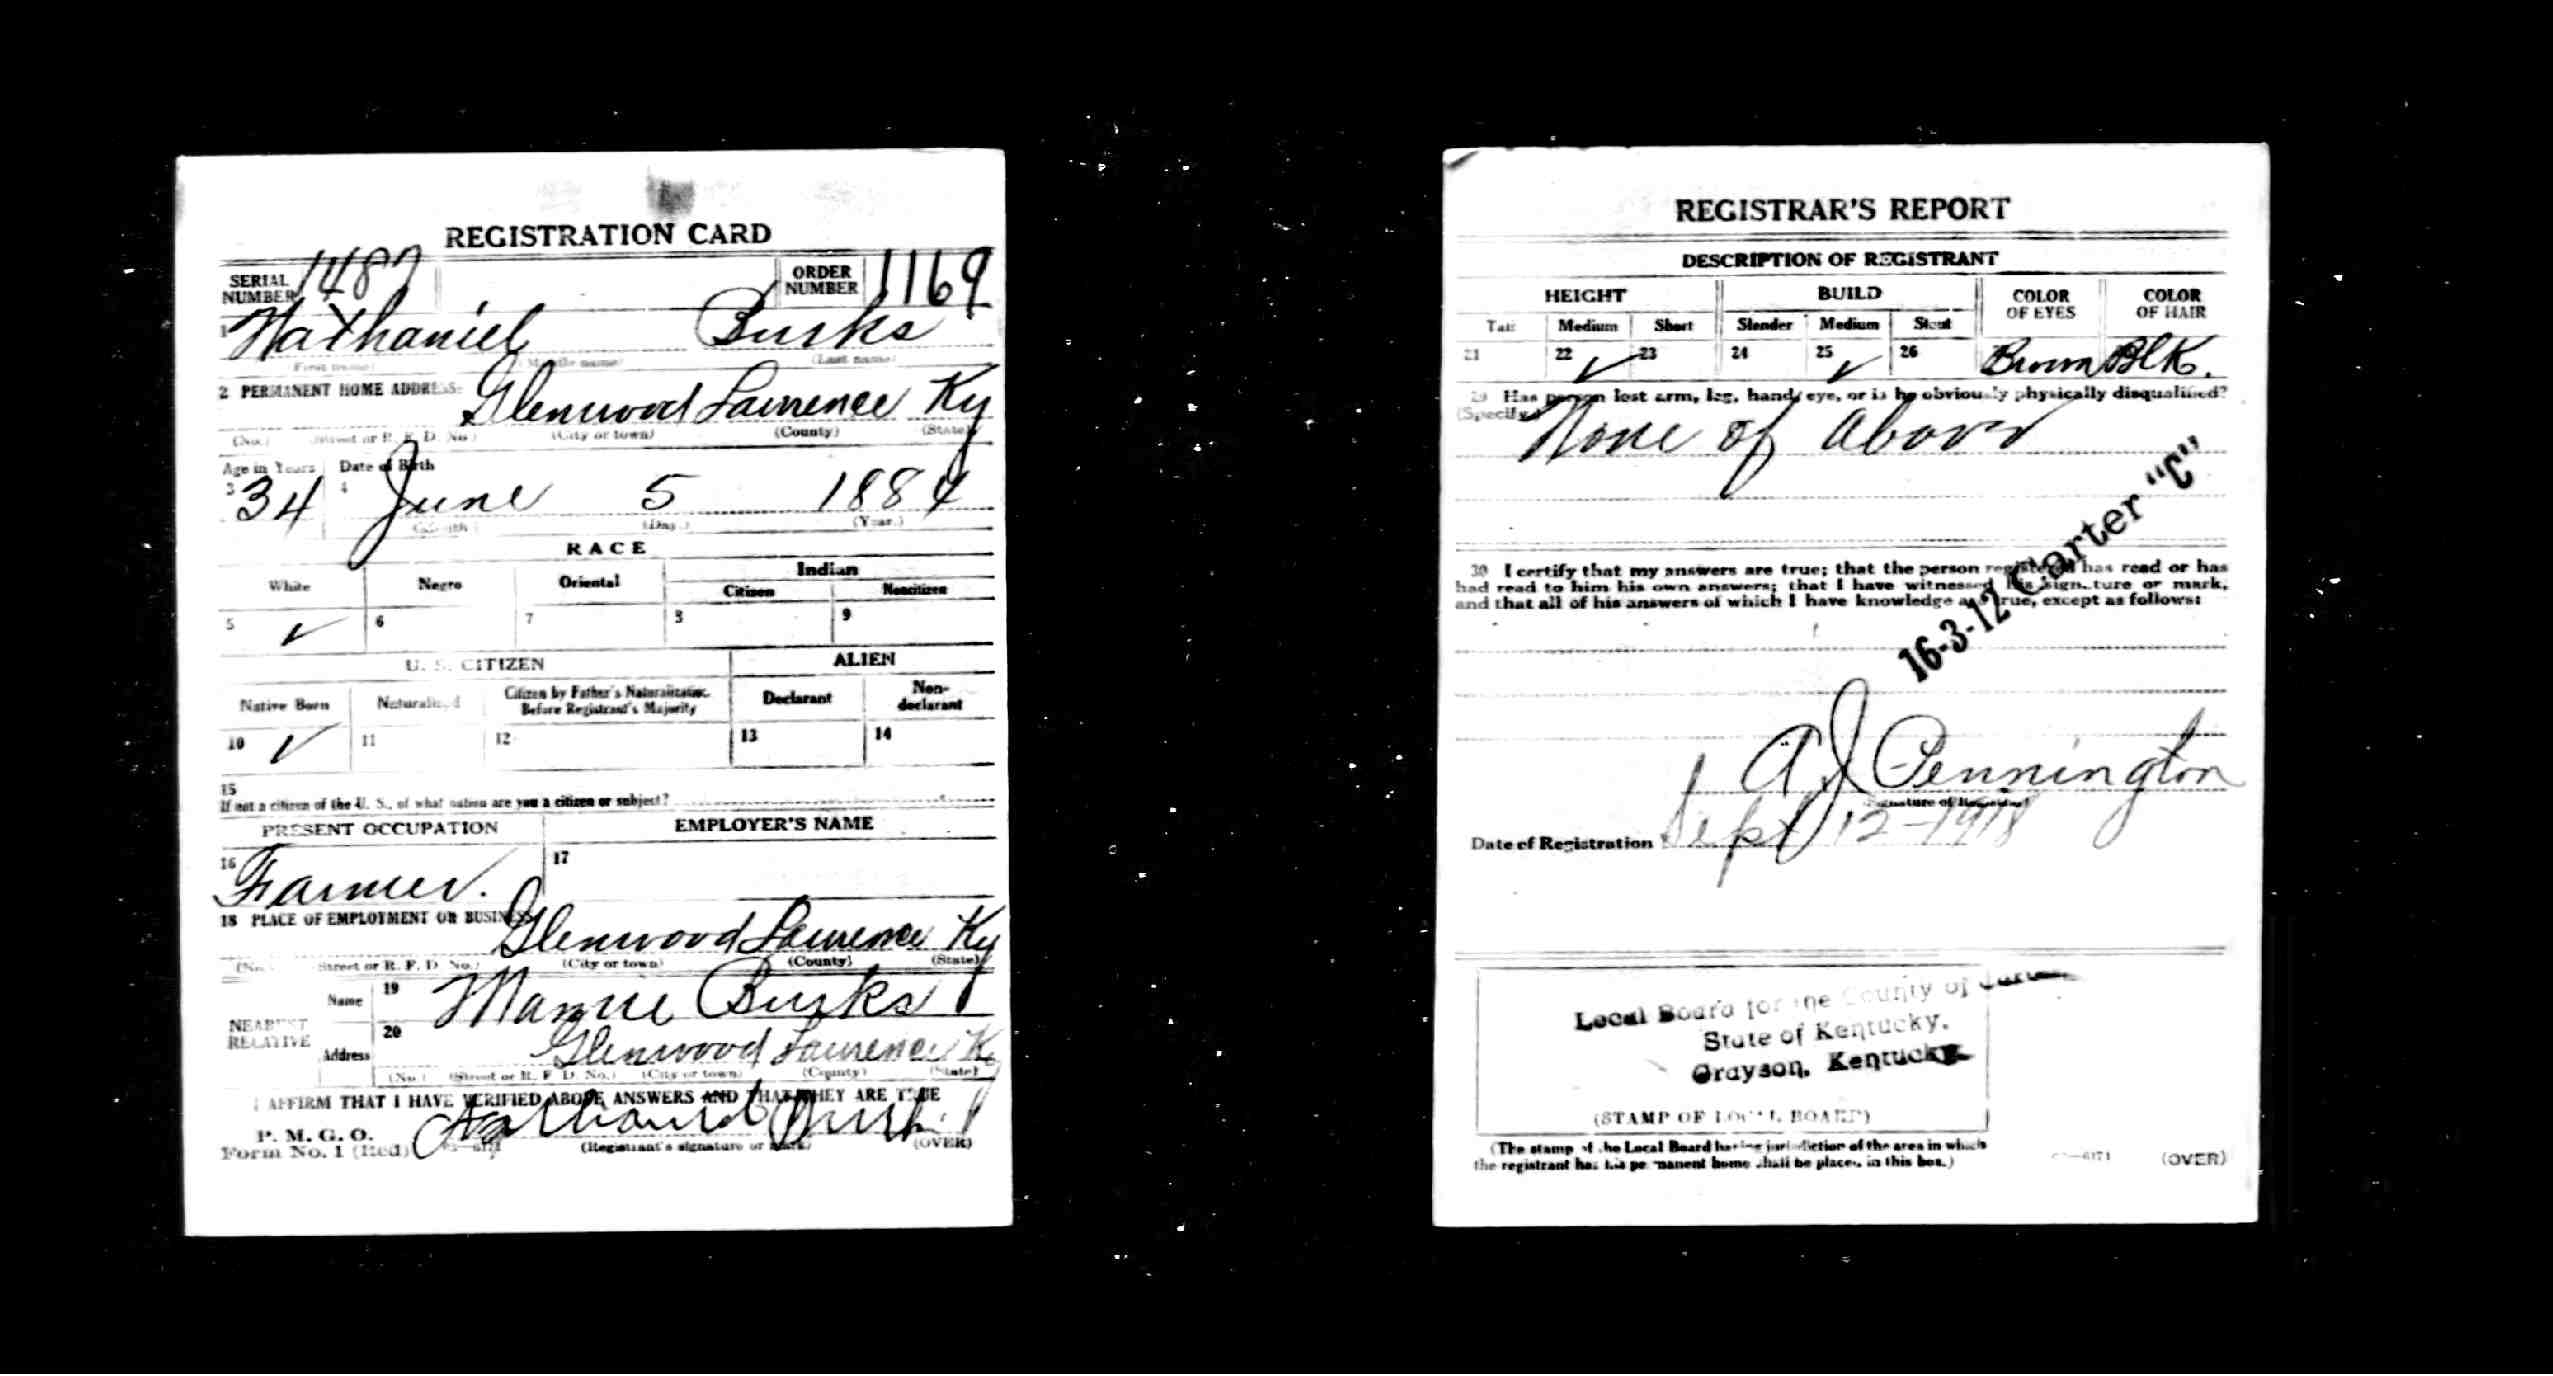 REGISTRATION CARD
SERIAL NUMBER 1487 ORDER NUMBER 1169
1 Nathaniel Burks
(First name) (Middle name) (Last name)
2 PERMANENT HOME ADDRESS:
Glenwood Lawrence Ky
(No.) (Street or R. F. D. No.) (City or town) (County) (State)
Age in Years Date of Birth
3 34 4 June 5 1884
(Month) (Day.) (Year.)
RACE
White Negro Oriental Indian
Citizen Noncitizen
5 ✓ 6 7 8 9
U. S. CITIZEN ALIEN
Native Born Naturalized Citizen by Father's Naturalization Before Registrant's Majority Declarant Non-declarant
10 ✓ 11 12 13 14
15
If not a citizen of the U. S., of what nation are you a citizen or subject?
PRESENT OCCUPATION EMPLOYER'S NAME
16 Farmer. 17
18 PLACE OF EMPLOYMENT OR BUSINESS
Glenwood Lawrence Ky
(No.) Street or R. F. D. No.) (City or town) (County) (State)
NEAREST RELATIVE
Name 19 Burks
Address 20 Glenwood Lawrence K
(No.) (Street or R. F. D. No.) (City or town) (County) (State)
I AFFIRM THAT I HAVE VERIFIED ABOVE ANSWERS AND THAT THEY ARE TRUE
P. M. G. O.
Form No. 1 (Red)
(Registrant's signature or mark) (OVER)
REGISTRAR'S REPORT
DESCRIPTION OF REGISTRANT
HEIGHT BUILD COLOR OF EYES COLOR OF HAIR
Tall Medium Short Slender Medium Stout
21 22 ✓ 23 24 25 ✓ 26 Brown Blk.
29 Has person lost arm, leg, hand, eye, or is he obviously physically disqualified?
(Specify.)
None of above
16-3-12 Carter "C"
30 I certify that my answers are true; that the person registered has read or has
had read to him his own answers; that I have witnessed his signature or mark,
and that all of his answers of which I have knowledge are true, except as follows:
A J Pennington
(Signature of Registrar)
Date of Registration Sept 12-1918
Local Board for the County of Carter
State of Kentucky.
Grayson, Kentucky
(STAMP OF LOCAL BOARD)
(The stamp of the Local Board having jurisdiction of the area in which
the registrant has his permanent home shall be placed in this box.)
(OVER)